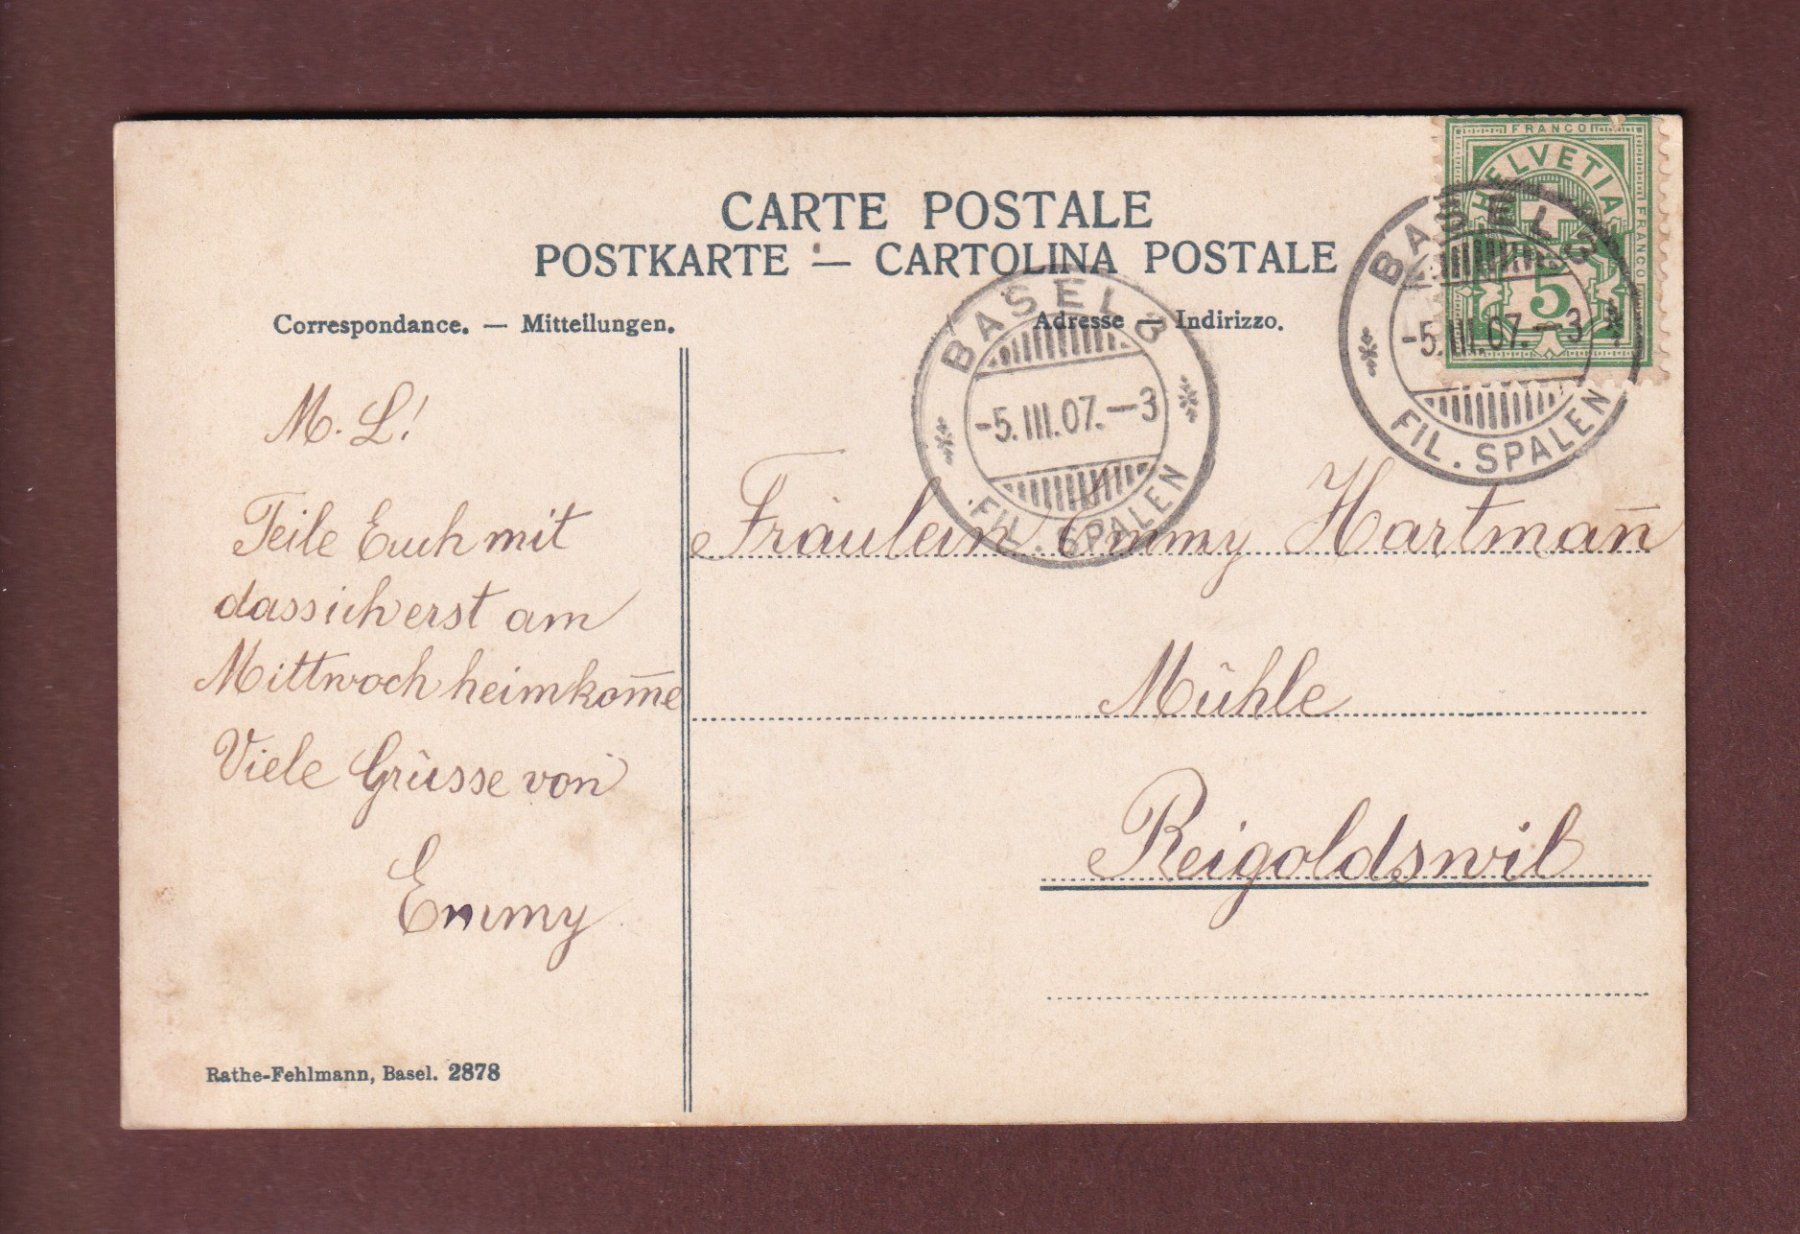 CARTE POSTALE
POSTKARTE — CARTOLINA POSTALE
Correspondance. — Mitteilungen.
Adresse — Indirizzo.
FRANCO
HELVETIA
FRANCO
5
BASEL 3
-5.III.07.—3
FIL. SPALEN
BASEL 3
-5.III.07.—3
FIL. SPALEN
M. L!
Teile Euch mit
dass ich erst am
Mittwoch heimkom̅e
Viele Grüsse von
Emmy
Fräulein Emmy Hartman̅
Mühle
Reigoldswil
Rathe-Fehlmann, Basel. 2878